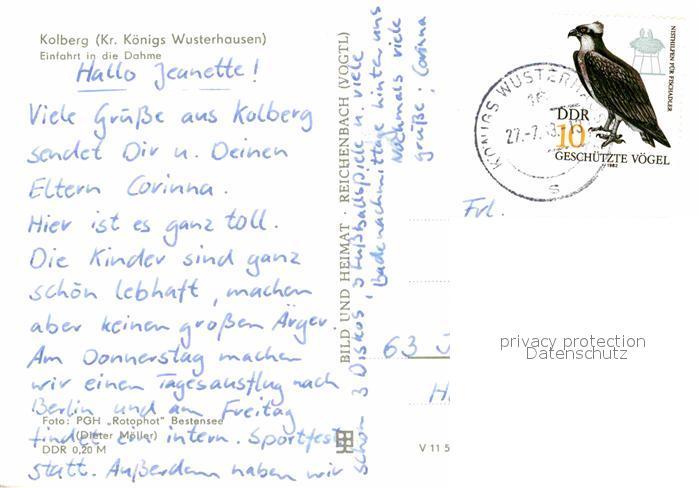 Kolberg (Kr. Königs Wusterhausen)
Einfahrt in die Dahme
Hallo Jeanette!
Viele Grüße aus Kolberg
sendet Dir u. Deinen
Eltern Corinna.
Hier ist es ganz toll.
Die Kinder sind ganz
schön lebhaft, machen
aber keinen großen Ärger.
Am Donnerstag machen
wir einen Tagesausflug nach
Berlin und am Freitag
findet ein intern. Sportfest
statt. Außerdem haben wir
schon 3 Diskos, 3 Fußballspiele u. viele
Badenachmittage hinter uns
Nochmals viele
Grüße; Corinna
Foto: PGH „Rotophot" Bestensee
(Dieter Möller)
DDR 0,20 M
BILD UND HEIMAT · REICHENBACH (VOGTL)
V 11 5
NISTHILFEN FÜR FISCHADLER
DDR
10
GESCHÜTZTE VÖGEL
1982
KÖNIGS WUSTERHA
27.-7.
s
Frl.
63
privacy protection
Datenschutz